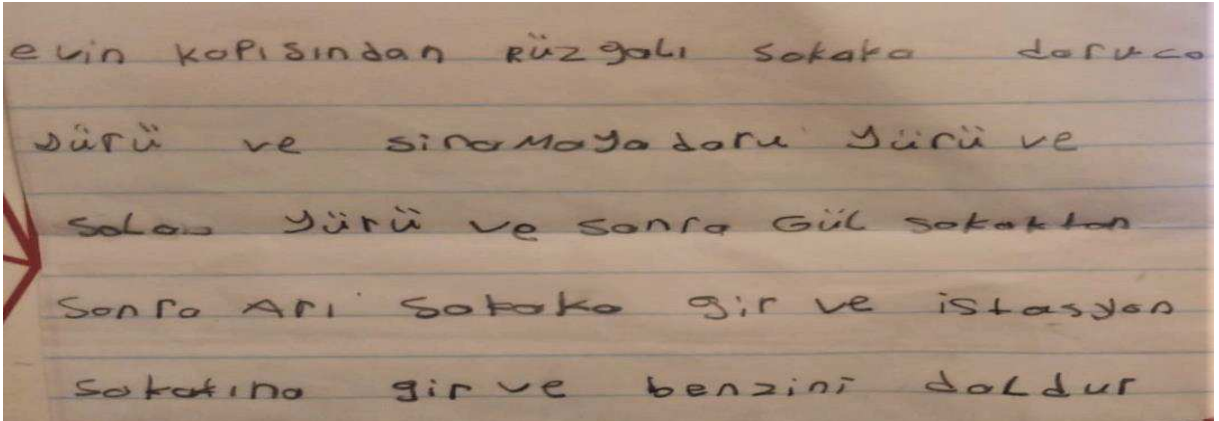 evin kapısından Rüzgalı sokaka doruca
sürü ve sinamaya doru yürü ve
yürü ve sonra Gül sokaktan
sonra Arı sokaka gir ve istasyon
sokakına gir ve benzini doldur